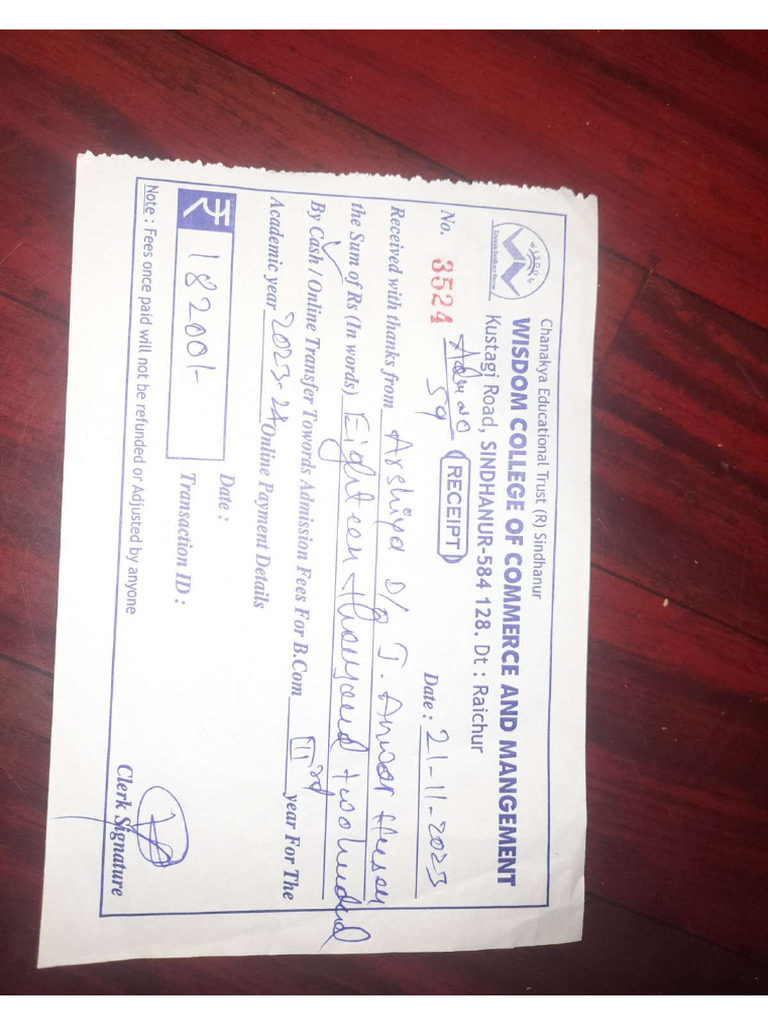 Chanakya Educational Trust (R) Sindhanur
WISDOM COLLEGE OF COMMERCE AND MANGEMENT
Kustagi Road, SINDHANUR-584 128. Dt : Raichur
WISDOM
No. 3524 59 RECEIPT Date : 21-11-2023
Received with thanks from Arshiya D/o J. Anwar Husen
the Sum of Rs (In words) Eighteen thousand two hundred
By Cash / Online Transfer Towords Admission Fees For B.Com IIIrd year For The
Academic year 2023-24 Online Payment Details
Date :
₹ 18200/- Transaction ID :
Clerk Signature
Note : Fees once paid will not be refunded or Adjusted by anyone